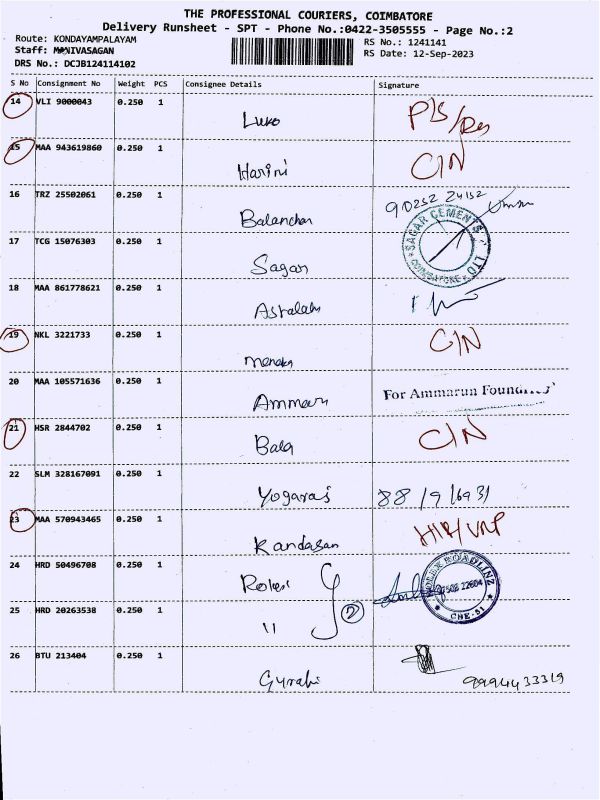 THE PROFESSIONAL COURIERS, COIMBATORE
Delivery Runsheet - SPT - Phone No.:0422-3505555 - Page No.:2
Route: KONDAYAMPALAYAM RS No.: 1241141
Staff: MANIVASAGAN RS Date: 12-Sep-2023
DRS No.: DCJB124114102
S No Consignment No Weight PCS Consignee Details Signature
14 VLI 9000043 0.250 1
15 MAA 943619860 0.250 1
Harini CIN
16 TRZ 25502061 0.250 1
17 TCG 15076303 0.250 1
SAGAR CEMENTS LTD
COIMBATORE
Sagar
18 MAA 861778621 0.250 1
19 NKL 3221733 0.250 1
CIN
20 MAA 105571636 0.250 1
For Ammarun Foundries
21 HSR 2844702 0.250 1
Bala CIN
22 SLM 328167091 0.250 1
Yogaraj
23 MAA 570943465 0.250 1
Kandasan
24 HRD 50496708 0.250 1
25 HRD 20263538 0.250 1
" 2
CBE-51
26 BTU 213404 0.250 1
9994433319